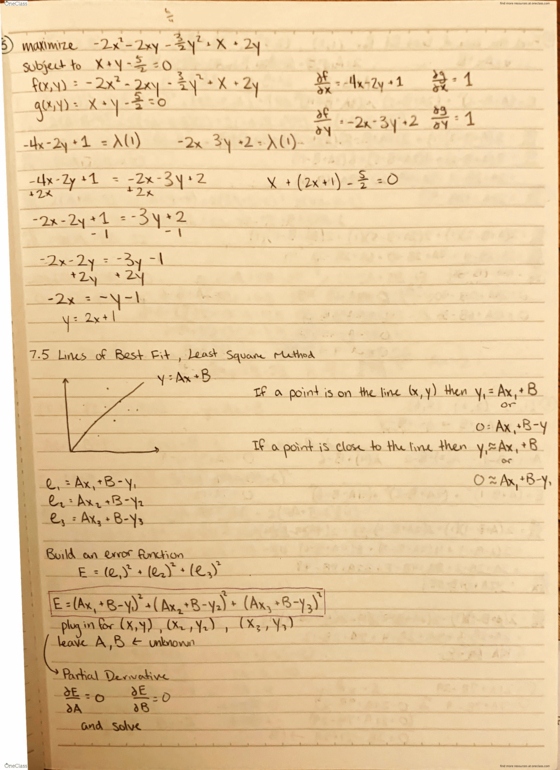 OneClass
find more resources at oneclass.com
5/2
3) maximize -2x² - 2xy - 3/2 y² + x + 2y
subject to x + y - 5/2 = 0
f(x,y) = -2x² - 2xy - 3/2 y² + x + 2y
g(x,y) = x + y - 5/2 = 0
∂f/∂x = -4x - 2y + 1 ∂g/∂x = 1
∂f/∂y = -2x - 3y + 2 ∂g/∂y = 1
-4x - 2y + 1 = λ(1) -2x 3y + 2 = λ(1)
-4x - 2y + 1 = -2x - 3y + 2 x + (2x+1) - 5/2 = 0
+2x +2x
-2x - 2y + 1 = -3y + 2
-1 -1
-2x - 2y = -3y - 1
+2y +2y
-2x = -y - 1
y = 2x + 1
7.5 Lines of Best Fit, Least Square Method
y = Ax + B
If a point is on the line (x,y) then y₁ = Ax₁ + B
or
0 = Ax₁ + B - y
If a point is close to the line then y₁ ≈ Ax₁ + B
or
0 ≈ Ax₁ + B - y₁
e₁ = Ax₁ + B - y₁
e₂ = Ax₂ + B - y₂
e₃ = Ax₃ + B - y₃
Build an error function
E = (e₁)² + (e₂)² + (e₃)²
E = (Ax₁ + B - y₁)² + (Ax₂ + B - y₂)² + (Ax₃ + B - y₃)²
plug in for (x,y), (x₂, y₂), (x₃, y₃)
leave A, B ← unknown
→ Partial Derivative
∂E/∂A = 0 ∂E/∂B = 0
and solve
OneClass
find more resources at oneclass.com